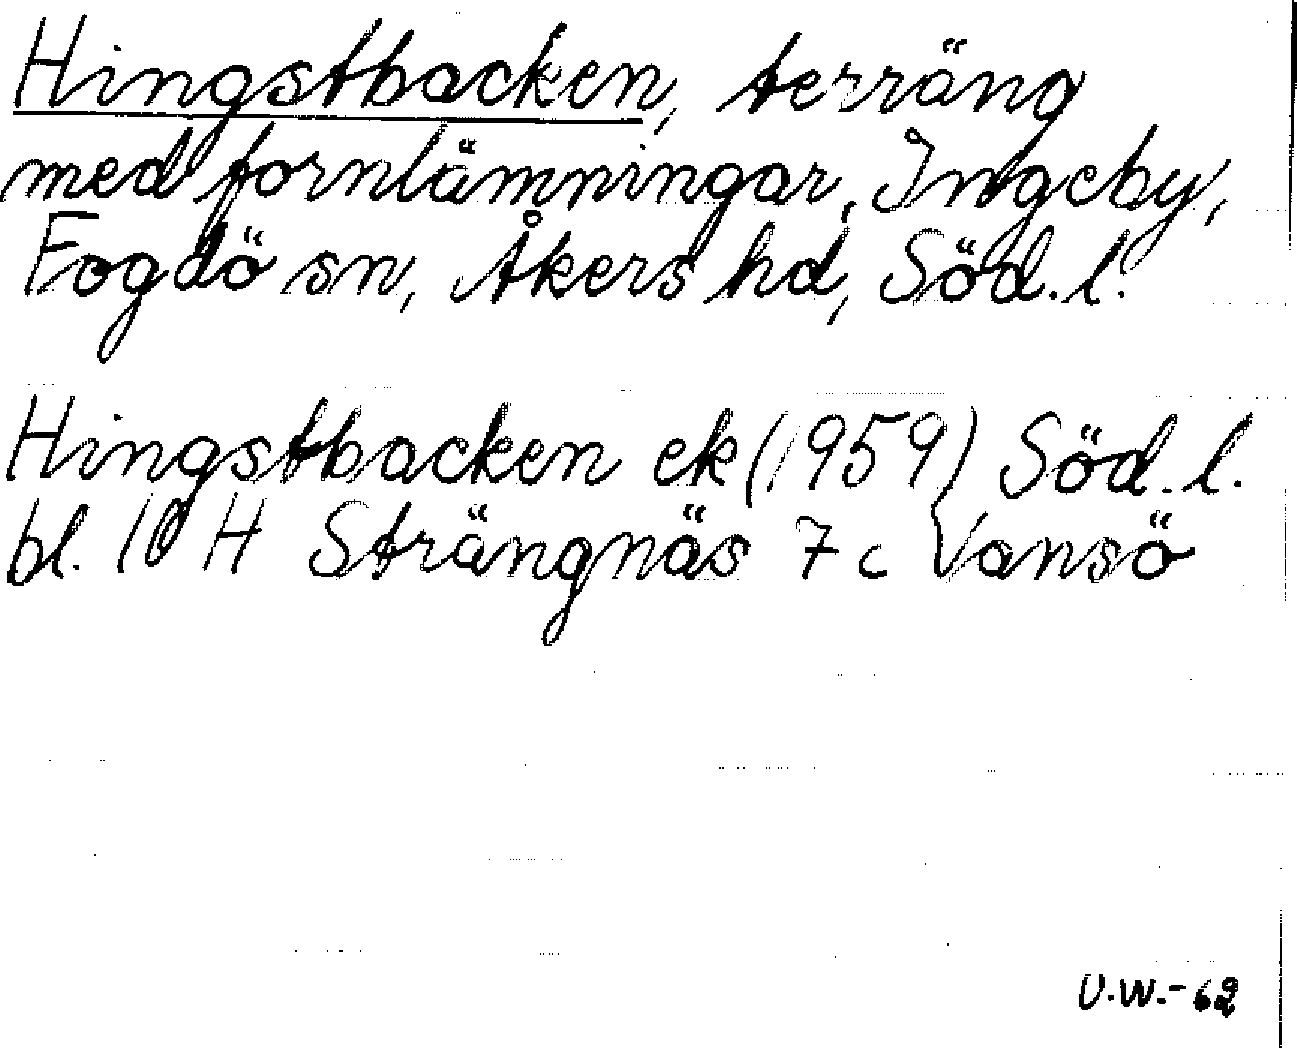 Hingstbacken, terräng
med fornlämningar, Ingeby,
Fogdö sn, Åkers hd, Söd. l.
Hingstbacken ek (1959) Söd. l.
bl. 10 H Strängnäs 7 c Vansö
U.W.-62